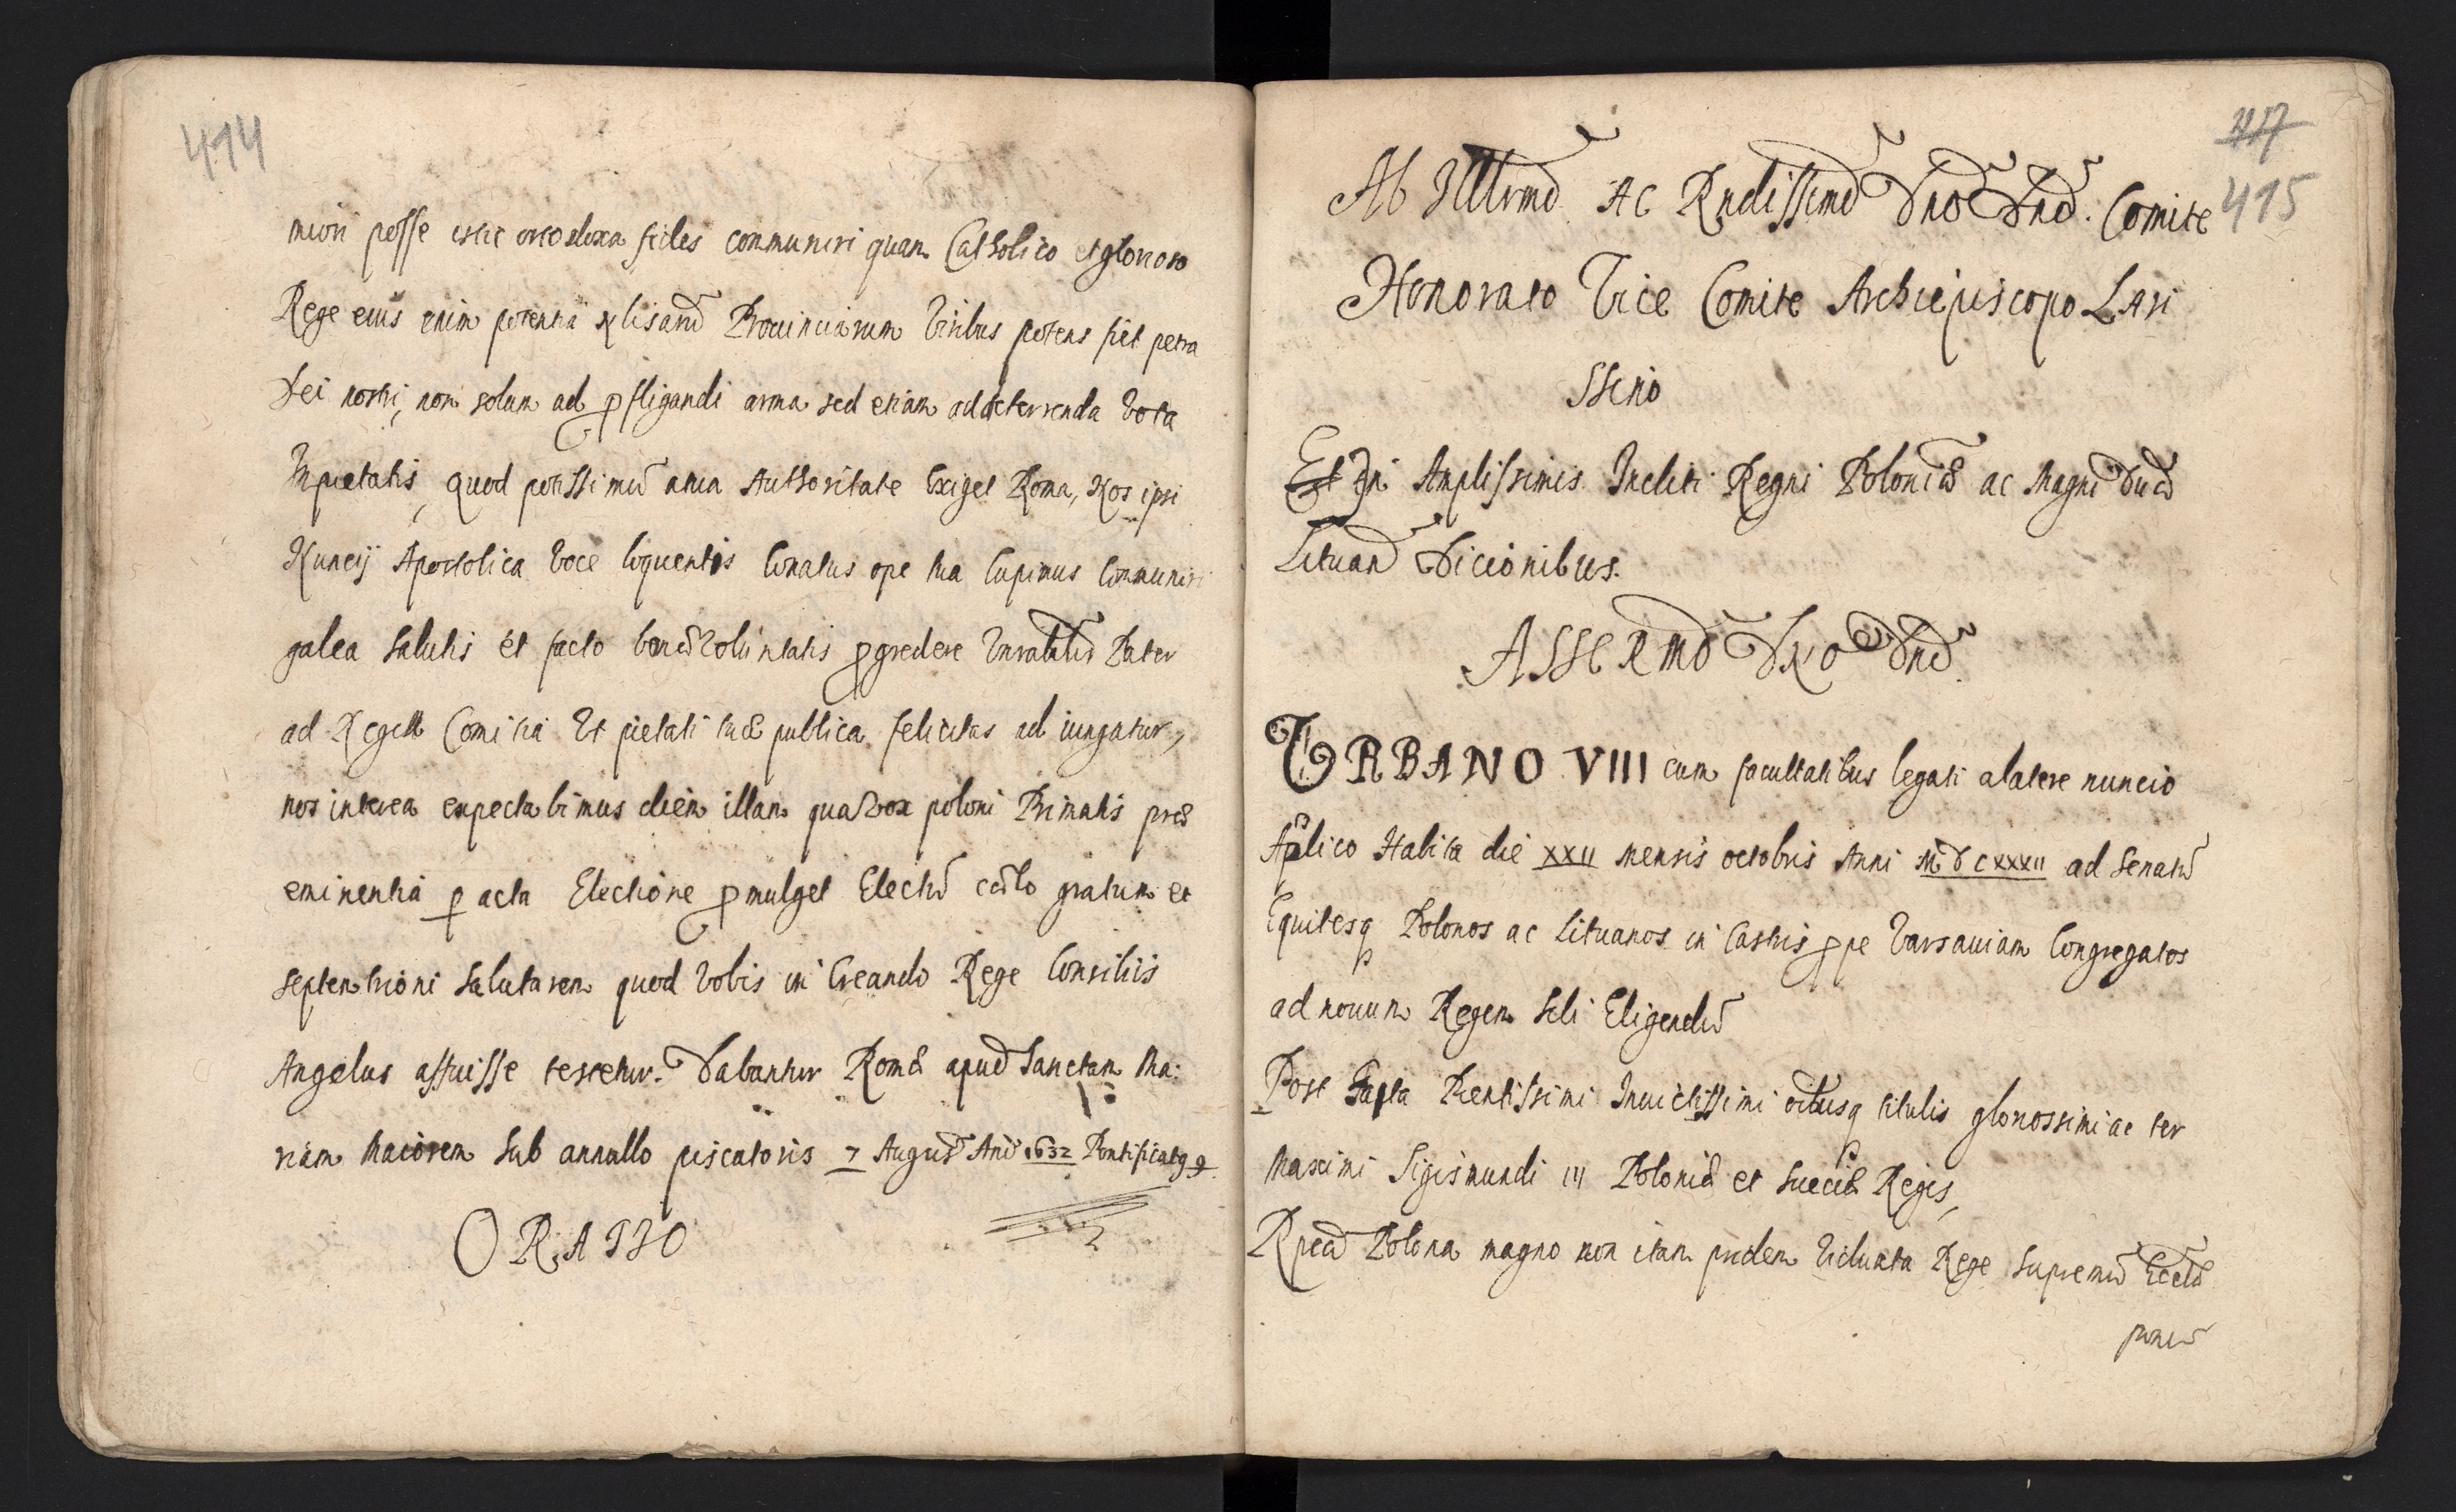 414
miori posse istic ortodoxa fides communiri quam Catholico et glorioso
Rege eius enim potentia Provinciarum Viribus potens fiet petra
Dei nostri, non solum ad ꝓfligandi arma sed etiam ad deterrenda Vota
Impietatis, quod potissimū Authoritate Exiget Roma, Nos ipsi
Nuncij Apostolica Voce loquentis Conatus ope tua Cupimus Communiri
galea Salutis et bonæ Voluntatis ꝓgredere Pater
ad Regia Comitia Et pietati tuæ publica felicitas ad iungatur,
nos interea expectabimus diem illam qua Vox poloni Primatis præ
eminentia ꝑ acta Electione ꝓmulget Electū cœlo gratum et
septentrioni Salutarem quod Vobis in Creando Rege Consiliis
Angelus affuisse testetur. Dabantur Romæ apud Sanctam Ma:
riam Maiorem Sub annullo piscatoris 7 August Anō 1632 Pontificatq 9.
ORATIO
417
415
Ab Illrmō Ac Rndissimō Dnō Dnō. Comite
Honorato Vice Comite Archiepiscopo Lari
sseno
Et In Amplissimis Incliti Regni Poloniæ ac Magni Ducō
Lituanō Dicionibus.
A SSERMO DNO Dnō.
URBANO VIII cum facultatibus legati alatere nuncio
Aplico Habita die XXII Mensis octobris Anni MDCXXXII ad Senatū
Equitesq Polonos ac Lituanos in Castris ꝓpe Varsaviam Congregatos
ad novum Regem Sibi Eligendū
Post Facta Pientissimi Invictissimi titulis gloriossimi ac ter
Maximi Sigismundi III Poloniæ et Sueciæ Regis,
Rpca Polona magno non itam pridem Viduata Rege Supremū Eccl